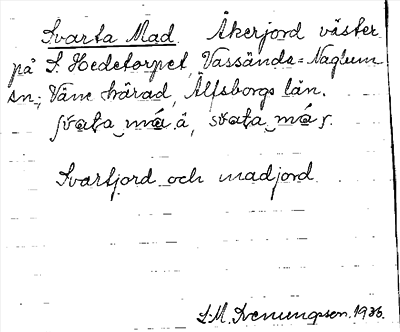 Svarta Mad. Åkerjord väster
på S. Hedetorpet, Vassända-Naglum
sn., Väne härad, Älfsborgs län.
svata má å, svata má s.
Svartjord och madjord.
S.M. Svenungsson. 1936.